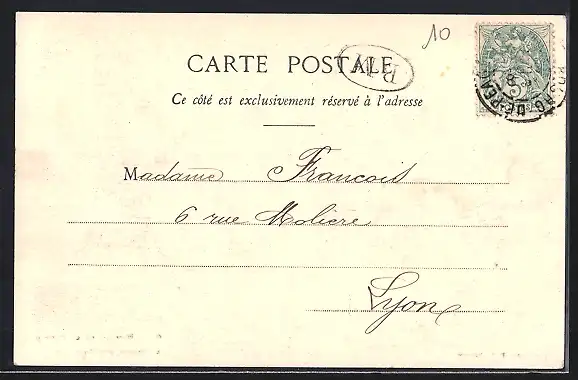 10
CARTE POSTALE
Ce côté est exclusivement réservé à l'adresse
Madame Francois
6 rue Molière
Lyon